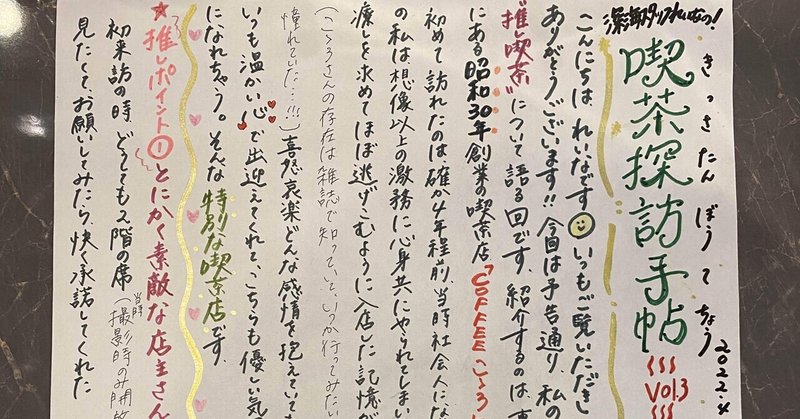 きっさたんぼうてちょう
喫茶探訪手帖
2022.4
Vol.3
深海スタッフれいな
こんにちは、れいなです いつもご覧いただき
ありがとうございます!! 今回は予告通り、私の
"推し喫茶"について語る回です。紹介するのは、
にある昭和30年創業の喫茶店"COFFEE こゝろ
初めて訪れたのは確か4年程前、当時社会人にな
の私は、想像以上の激務に心身共にやられてしまい
癒しを求めてほぼ逃げこむように入店した記憶が
(こゝろさんの存在は雑誌で知っていて、いつか行ってみたい
憧れていた…!!!)喜怒哀楽どんな感情を抱えていても
いつも温かい心で出迎えてくれて、こちらも優しい気
になれちゃう。そんな特別な喫茶店です。
★推しポイント①とにかく素敵な店主さん
初来訪の時 どうしても2階の席(当時撮影時のみ開放
見たくて、お願いしてみたら、快く承諾してくれた